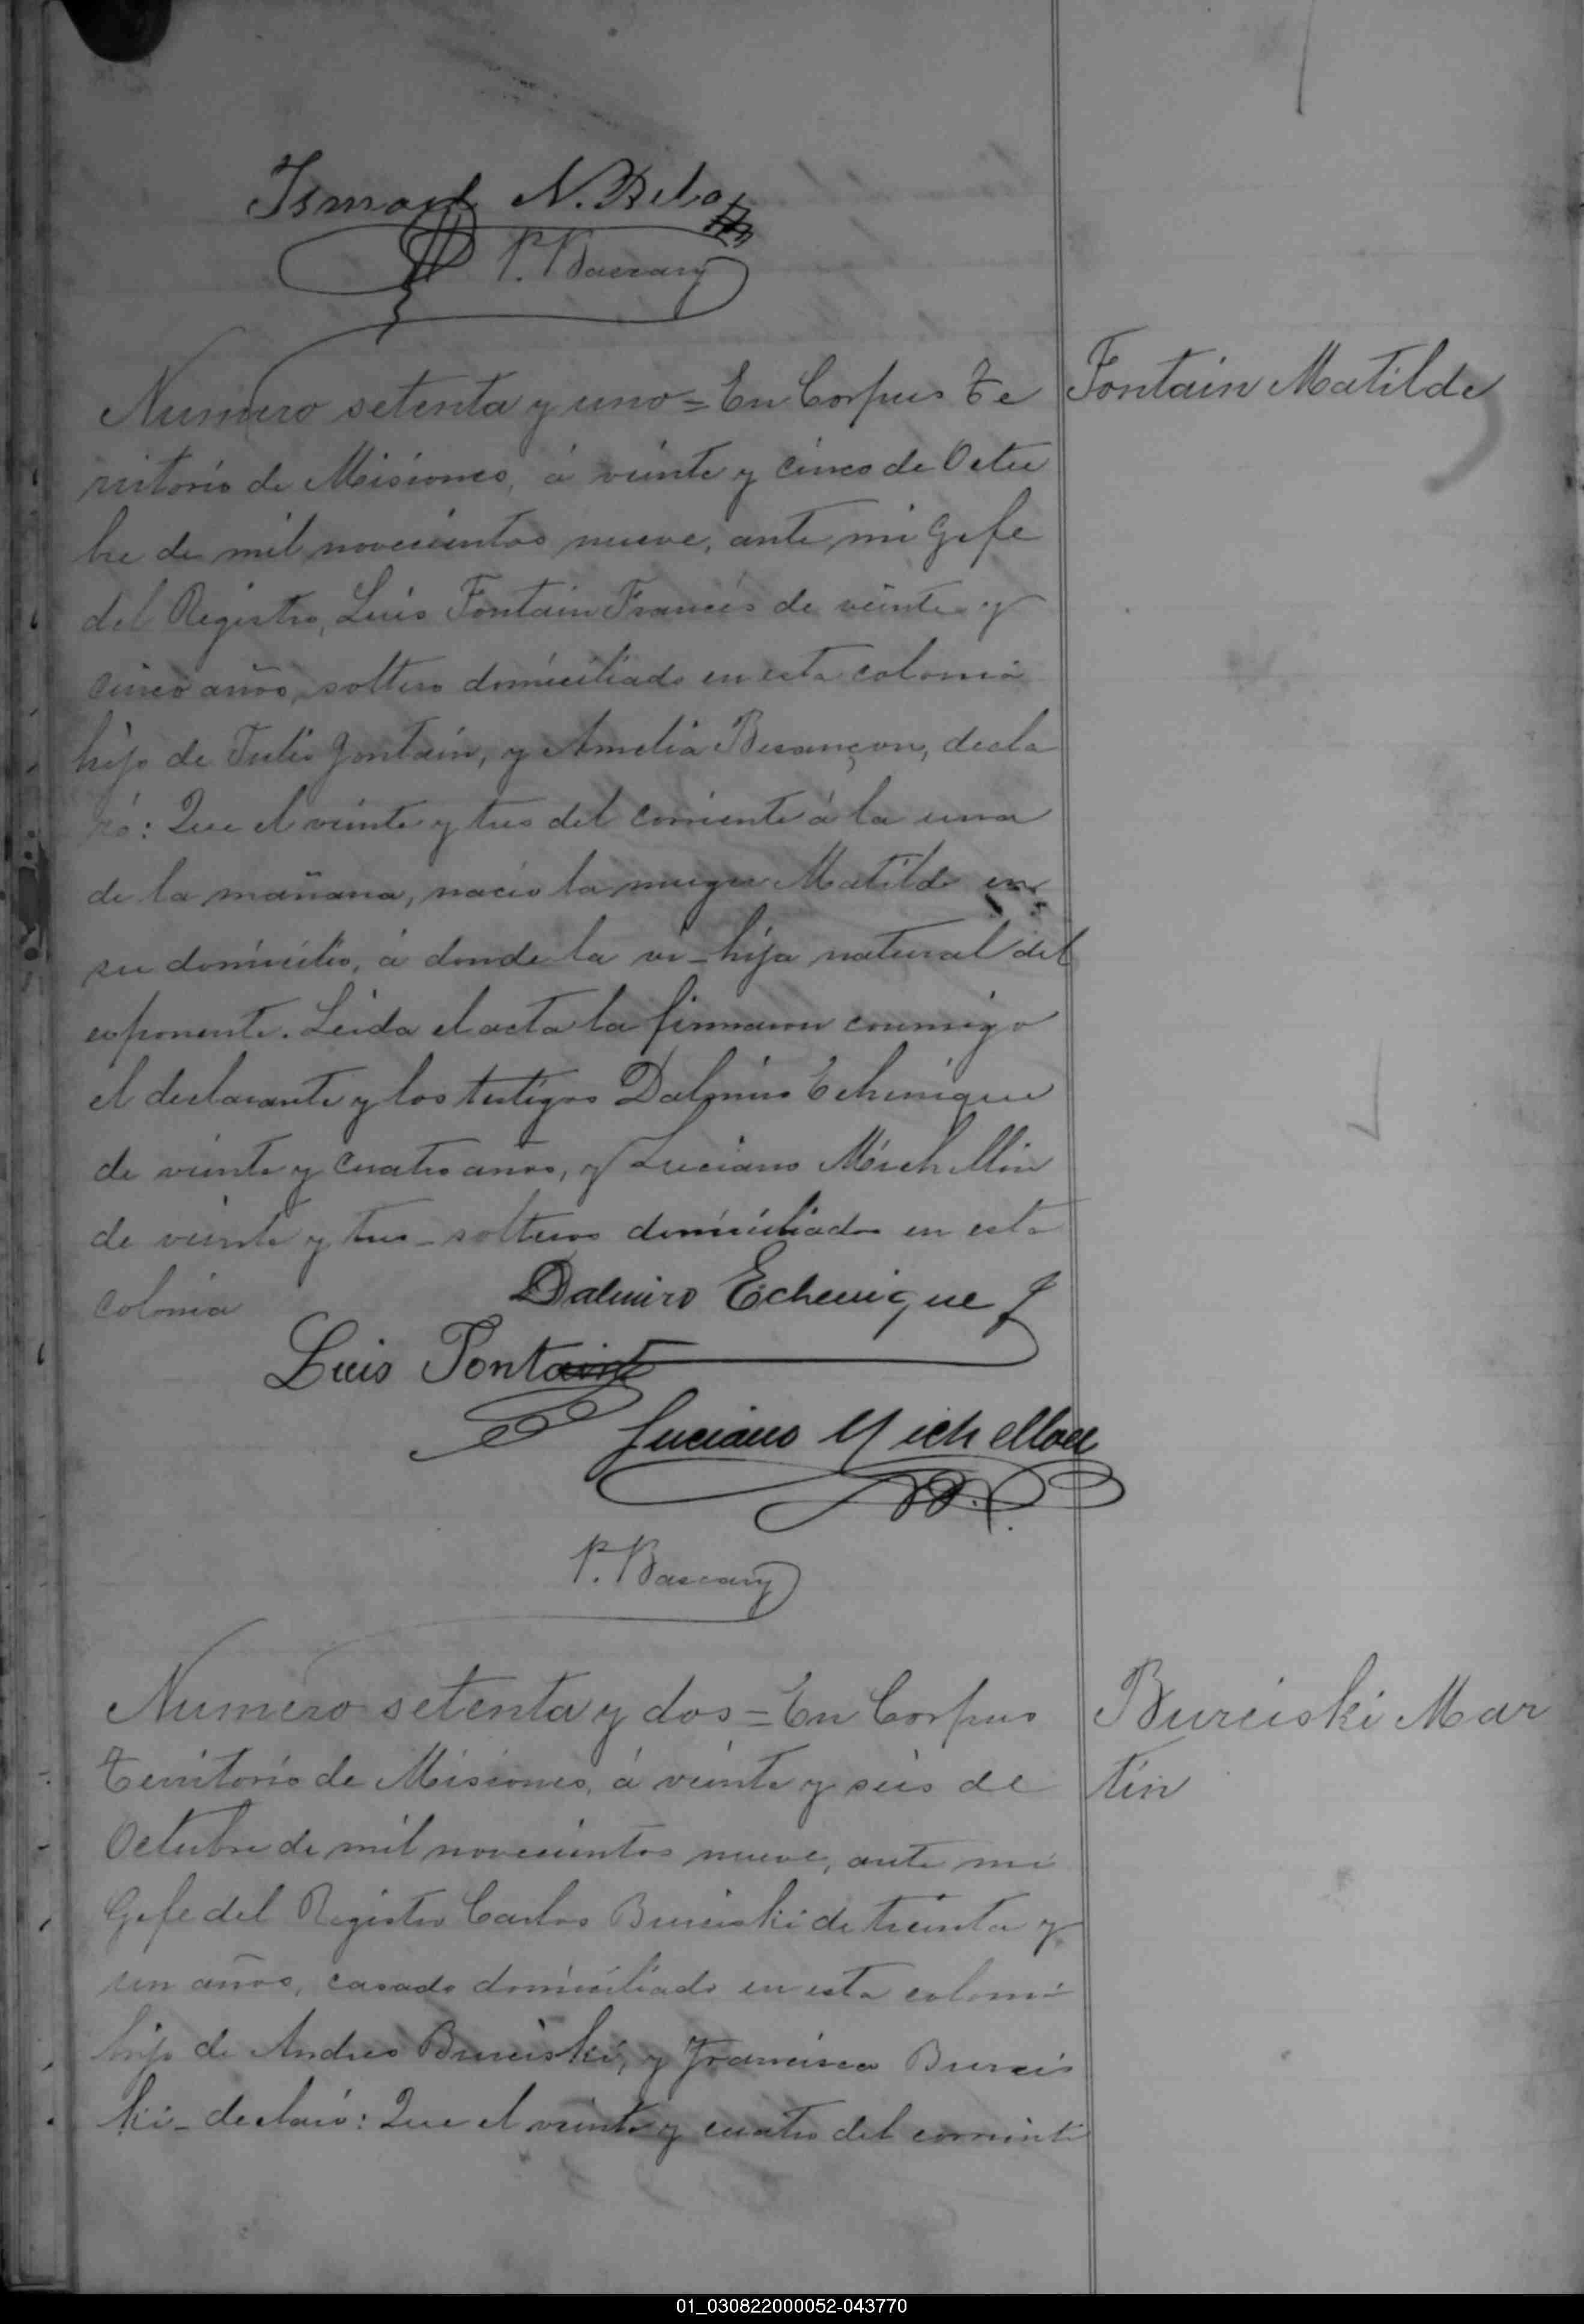 Ismael N. Belo
P. Bascary
Numero setenta y uno = En Corpus Te
Fontain Matilde
rritorio de Misiones, á veinte y cinco de Octu
bre de mil novecientos nueve, ante mi Gefe
del Registro, Luis Fontain Francés de veinte y
cinco años, soltero domiciliado en esta colonia
hijo de Julio Fontain, y Amelia Besançon, decla
ró: Que el veinte y tres del corriente á la una
de la mañana, nació la muger Matilde en
su domicilio, á donde la vi - hija natural del
esponente. Leida el acta la firmaron conmigo
el declarante y los testigos Dalmiro Echenique
de veinte y cuatro años, y Luciano Michellon
de veinte y tres - solteros domiciliados en esta
colonia
Dalmiro Echenique
Luis Fontaint
Luciano Michellon
P. Bascary
Numero setenta y dos = En Corpus
Burciski Mar
tin
Territorio de Misiones, á veinte y seis de
Octubre de mil novecientos nueve, ante mi
Gefe del Registro Carlos Burciski de treinta y
un años, casado domiciliado en esta colonia
hijo de Andres Burciski, y Francisca Burcis
ki - declaró: Que el veinte y cuatro del corriente
01_030822000052-043770